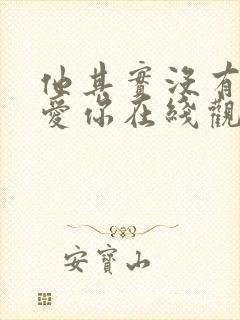 他其實沒有
愛你在綫觀
安寶山